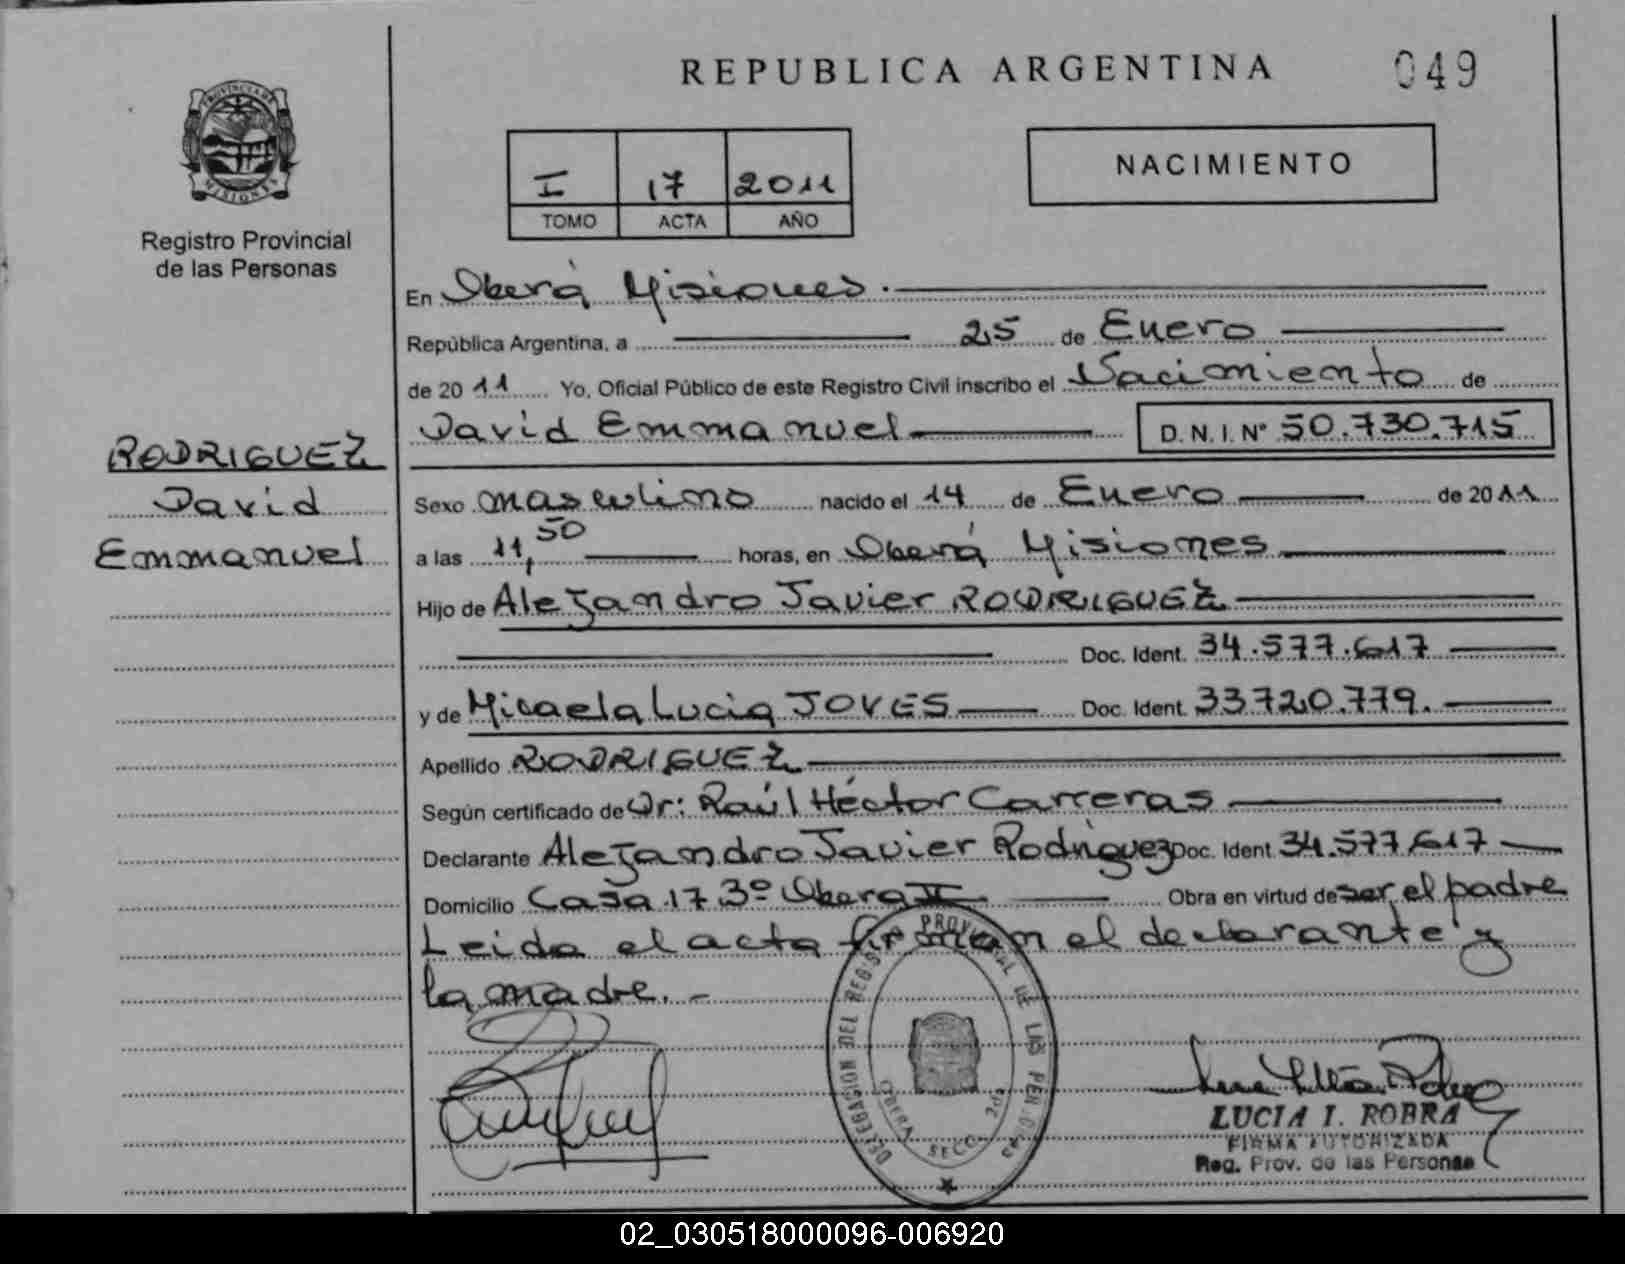 REPUBLICA ARGENTINA
049
PROVINCIA DE
MISIONES
Registro Provincial
de las Personas
I 17 2011
TOMO ACTA AÑO
NACIMIENTO
En Oberá Misiones.
República Argentina, a 25 de Enero
de 2011 Yo, Oficial Público de este Registro Civil inscribo el Nacimiento de
David Emmanuel D.N.I. Nº 50.730.715
RODRIGUEZ
David
Emmanuel
Sexo masculino nacido el 14 de Enero de 2011
a las 11,50 horas, en Oberá Misiones
Hijo de Alejandro Javier RODRIGUEZ
Doc. Ident. 34.577.617
y de Micaela Lucia JOVES Doc. Ident. 33720.779.
Apellido RODRIGUEZ
Según certificado de Dr: Raúl Héctor Carreras
Declarante Alejandro Javier Rodriguez Doc. Ident. 34.577.617
Domicilio Casa 17 3º Obera II Obra en virtud de ser el padre
Leida el acta firman el declarante y
la madre. -
DELEGACION DEL REGIS. PROVINCIAL DE LAS PERSONAS
OBERA SECC. 2da
LUCIA I. ROBRA
FIRMA AUTORIZADA
Reg. Prov. de las Personas
02_030518000096-006920